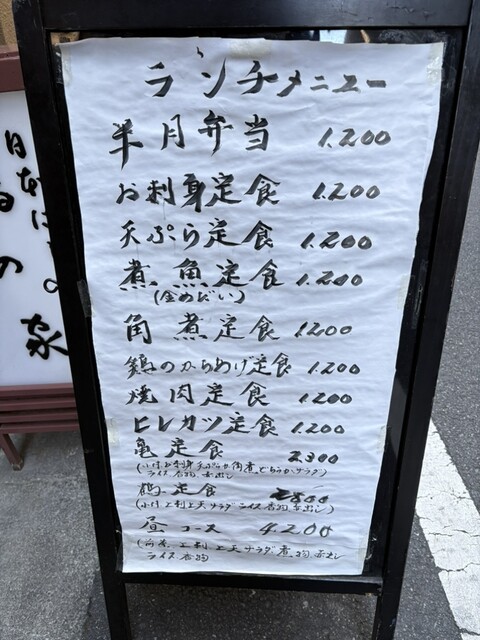 ランチメニュー
半月弁当 1.200
お刺身定食 1.200
天ぷら定食 1.200
煮魚定食 1.200
(金めだい)
角煮定食 1.200
鶏のからあげ定食 1.200
焼肉定食 1.200
ヒレカツ定食 1.200
亀定食 2.300
(小付お刺身天ぷら角煮 サラダ
ライス香物、赤出し)
鶴定食 2.800
(小付上刺上天サラダライス香物、赤出し)
昼コース 4.200
上刺上天サラダ煮物、赤出し
ライス香物
家